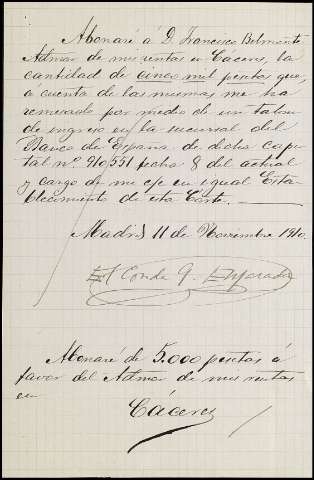 Abonaré á D. Francisco Belmonte
Admor de mis rentas en Cáceres, la
cantidad de cinco mil pesetas que,
á cuenta de las mismas me ha
remesado por medio de un talon
de ingreso en la sucursal del
Banco de España de dicha capi-
tal nº. 910,551 fecha 8 del actual
y cargo de mi c/c en igual Esta-
blecimiento de esta Corte.
Madrid 11 de Noviembre 1910.
El Conde de
Abonaré de 5.000 pesetas á
favor del Admor de mis rentas
en
Cáceres